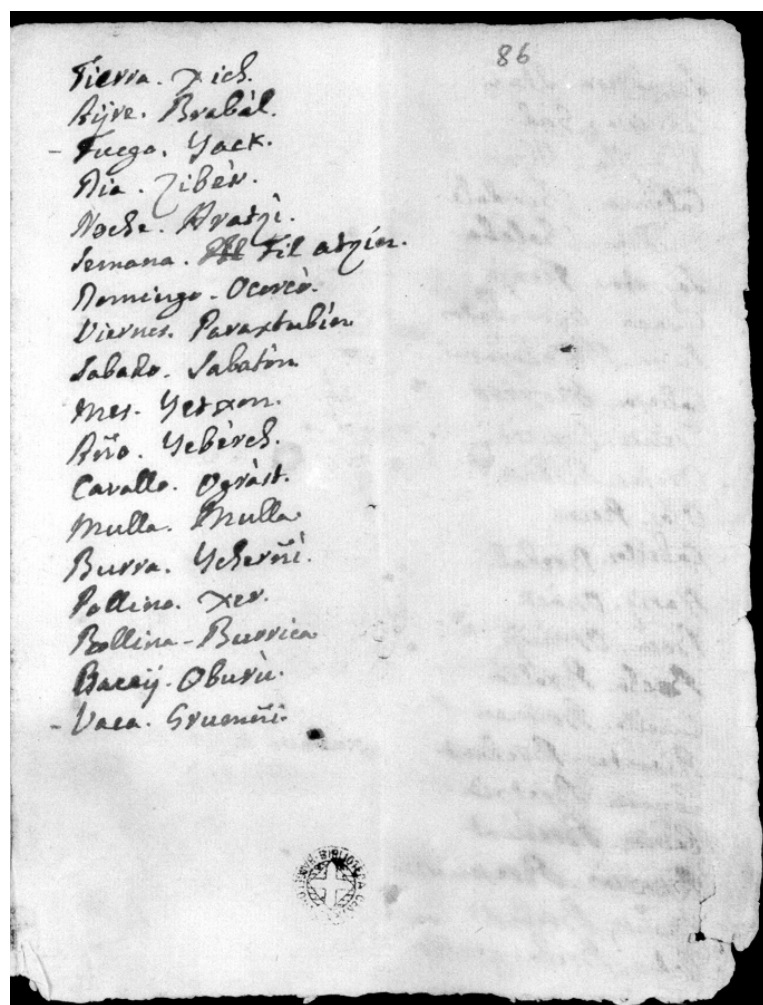 86
Tierra. xich.
Ayre. Brabàl.
- Fuego. Yack.
Dia. Zibèr.
Noche. Aratzì.
Semana. Fil atzín.
Domingo. Ocorcò.
Viernes. Paraxtubín
Sabado. Sabatòn
Mes. Yetxon.
Año. Yebèrch.
Cavallo. Ogràst.
Mulla. Mulla.
Burra. Ycherñì.
Pollino. xer.
Pollina - Burrica
Buey. Oburù.
- Vaca. Grucuñi.